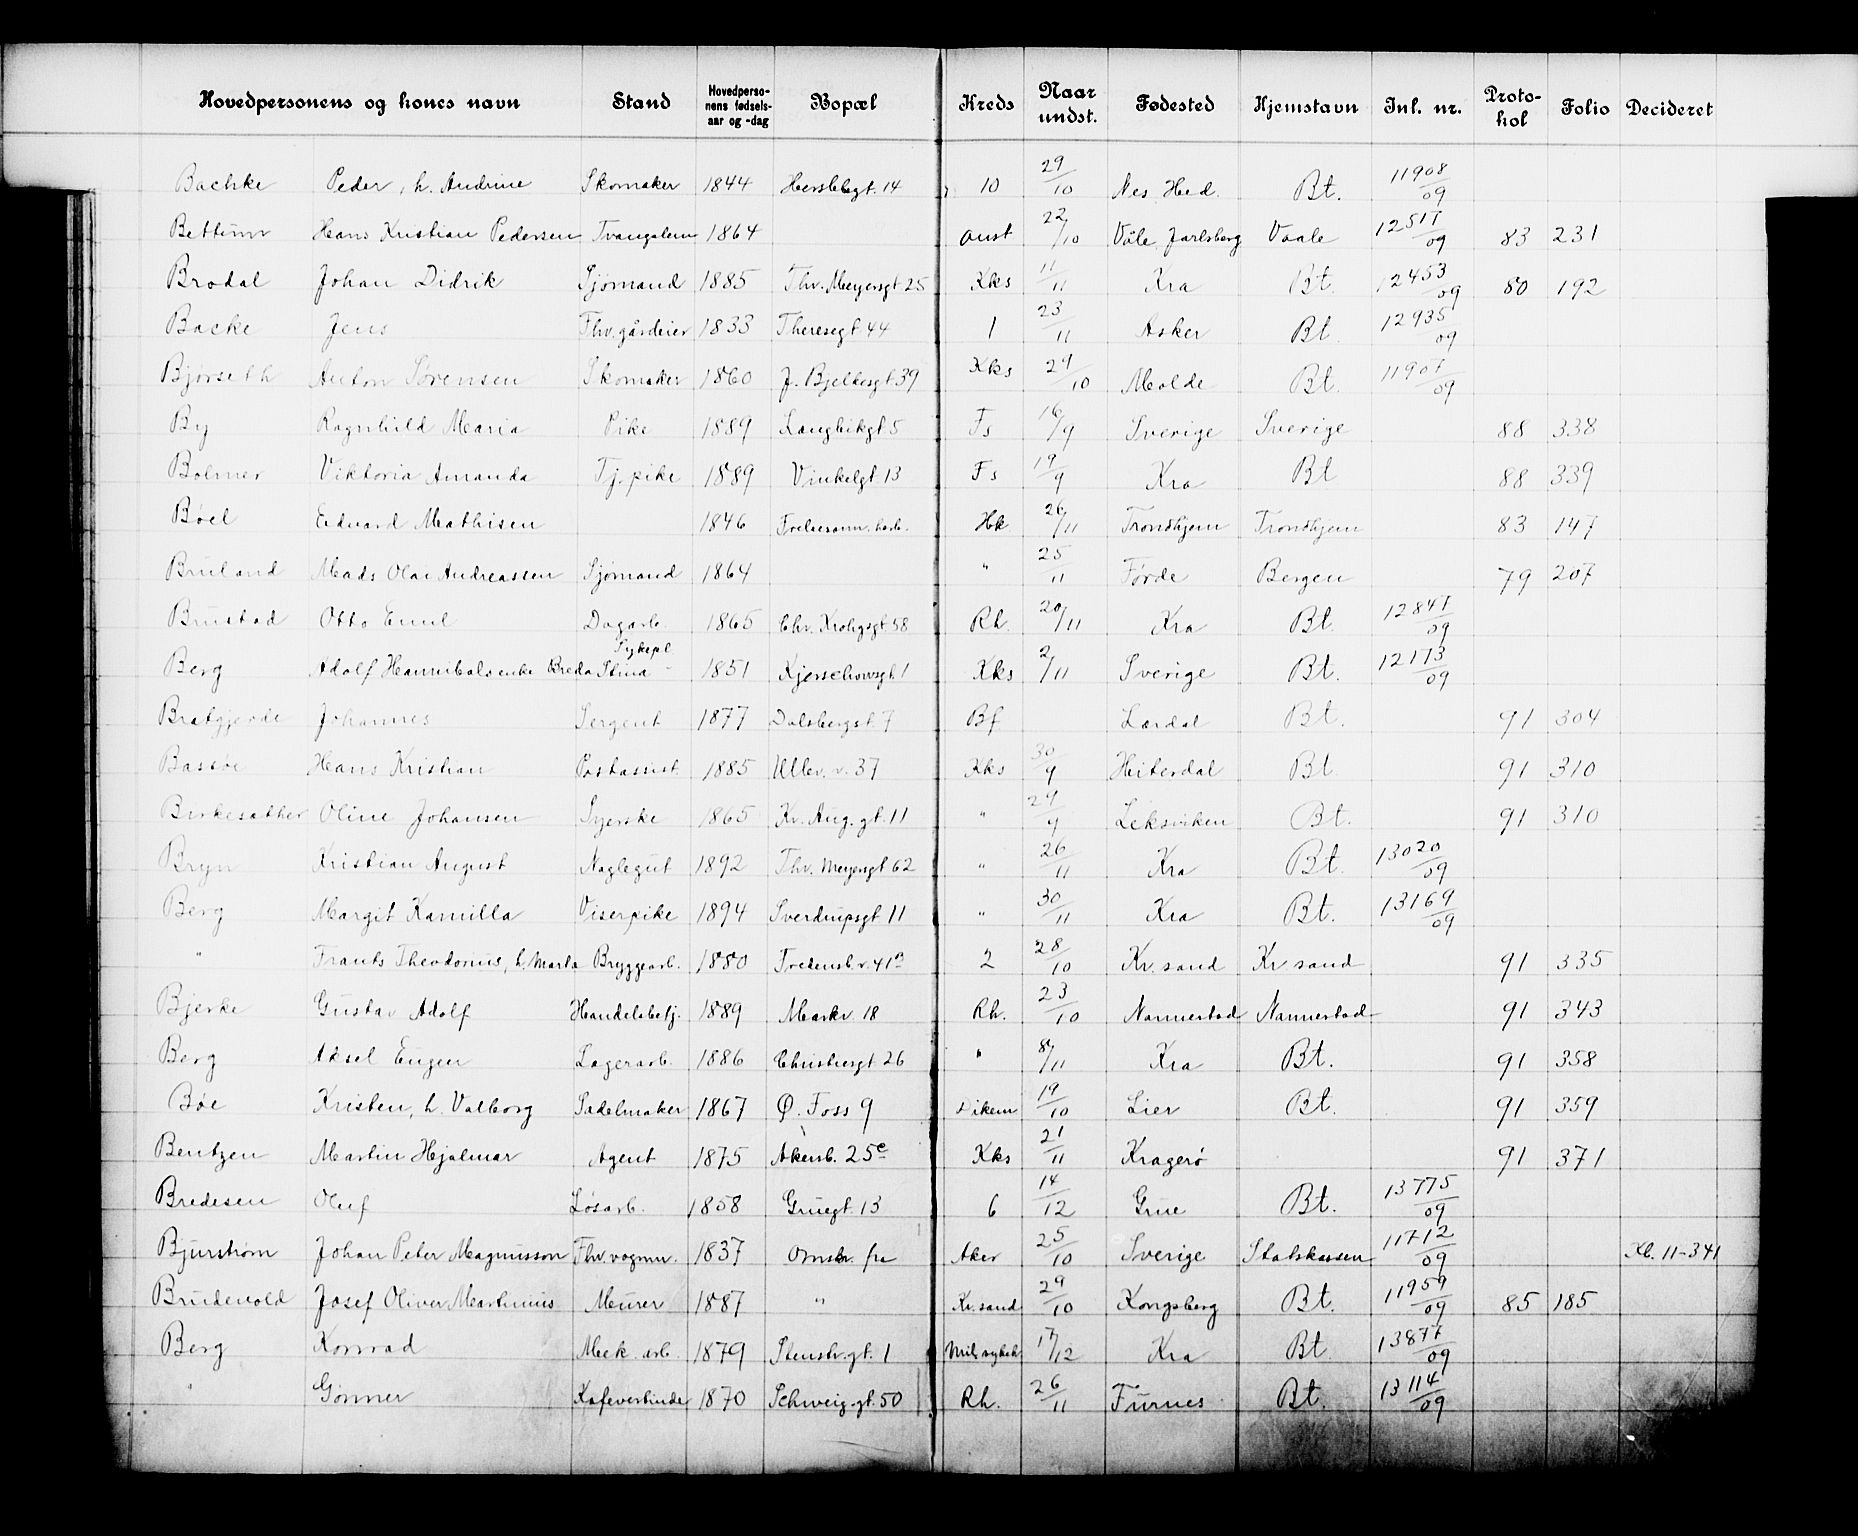 Hovedpersonens og kones navn | Stand | Hovedpersonens fødselsaar og -dag | Bopæl | Kreds | Naar undst. | Fødested | Hjemstavn | Inl. nr. | Protokol | Folio | Decideret
Bachke Peder, h. Andrine Skomaker 1844 Herslebgt. 14 10 29/10 Nes Hed. Bt. 11908/09
Bettum Hans Kristian Pedersen Tvangslem 1864 anst 22/10 Våle Jarlsberg Vaale 12517/09 83 231
Brodal Johan Didrik Sjømand 1885 Thv. Meyersgt 25 Kks 11/11 Kra Bt. 12453/09 80 192
Backe Jens Fhv. gårdeier 1833 Theresegt 44 1 23/11 Asker Bt. 12935/09
Bjørseth Anton Sørensen Skomaker 1860 J. Bjelkesgt 39 Kks 29/10 Molde Bt. 11907/09
By Ragnhild Maria Pike 1889 Langbikgt 5 Fs 16/9 Sverige Sverige 88 338
Bolmer Viktoria Amanda Tj. pike 1889 Vinkelgt 13 Fs 19/9 Kra Bt 88 339
Bøel Edvard Mathisen 1846 Frelsesarm. herb. Hk 26/11 Trondhjem Trondhjem 83 147
Bruland Mads Olai Andreassen Sjømand 1864 " 25/11 Førde Bergen 79 207
Brustad Otto Emil Dagarb. 1865 Chr. Krohgsgt 58 Rh. 20/11 Kra Bt. 12847/09
Berg Adolf Hannibals enke Breda Stina Sykepl. 1851 Kjerschowsgt 1 Kks 2/11 Sverige Bt. 12173/09
Bratgjerde Johannes Sergent 1877 Dalsbergst 7 Bf Lærdal Bt. 91 304
Bassøe Hans Kristian Postassist. 1885 Ullev. v. 37 Kks 30/9 Hiterdal Bt. 91 310
Birkesæther Oline Johansen Syerske 1865 Kr. Aug. gt. 11 " 29/9 Leksviken Bt. 91 310
Bryn Kristian August Naglegut 1892 Thv. Meyersgt 62 " 26/11 Kra Bt. 13020/09
Berg Margit Kamilla Viserpike 1894 Sverdrupsgt 11 " 30/11 Kra Bt. 13169/09
" Frants Theodorius, h. Marta Bryggearb. 1880 Fredensb. v. 41a 2 28/10 Kr. sand Kr sand 91 335
Bjerke Gustav Adolf Handelsbetj. 1889 Markv. 18 Rh. 23/10 Nannestad Nannestad 91 343
Berg Aksel Eugen Lagerarb. 1886 Christiesgt 26 " 8/11 Kra Bt. 91 358
Bøe Kristen, h. Valborg Sadelmaker 1867 Ø. Foss 9 Dikem 19/10 Lier Bt. 91 359
Bentzen Martin Hjalmar Agent 1875 Akersb. 25c Kks 21/11 Kragerø 91 371
Bredesen Oluf Løsarb. 1858 Gruegt. 13 6 14/12 Grue Bt. 13775/09
Bjurstrøm Johan Peter Magnusson Fhv. vognm. 1837 Omstr. fra Aker 25/10 Sverige Statskassen 11712/09 Kb. 11-341
Brudevold Josef Oliver Martinius Murer 1887 " Kr. sand 29/10 Kongsberg Bt. 11959/09 85 185
Berg Konrad Mek. arb. 1879 Stenstr. gt. 1 Mil. sykeh 17/12 Kra Bt. 13877/09
" Gunner Kafevertinde 1870 Schweig. gt. 50 Rh. 26/11 Furnes Bt. 13114/09